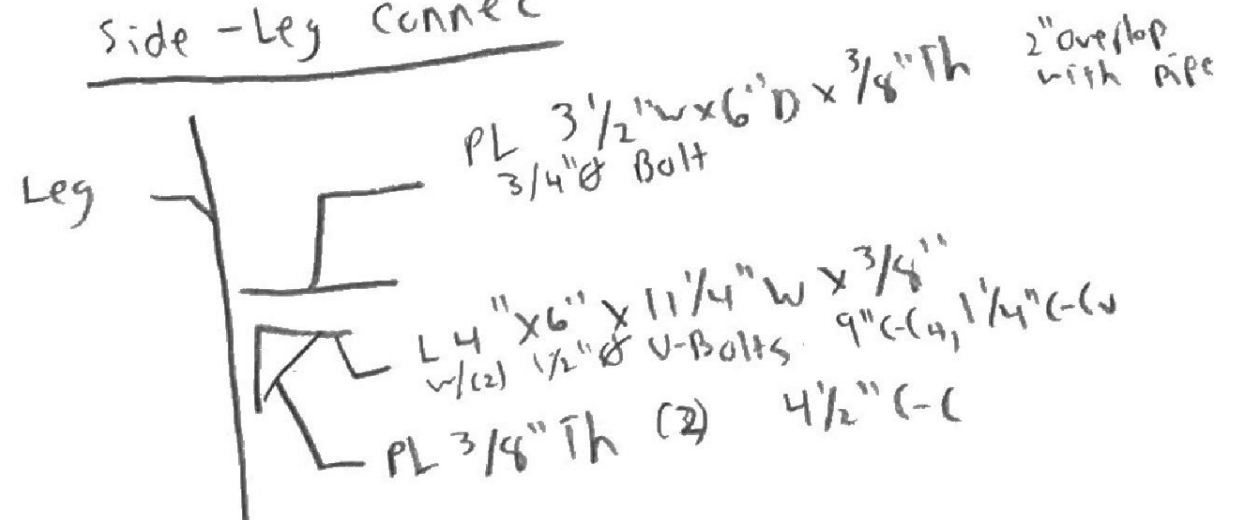 Side-Leg Connec
PL 3 1/2"W x 6"D x 3/8"Th
2" overlap
with pipe
3/4"ø Bolt
Leg
L 4"x6" x 11 1/4"W x 3/8"
w/(2) 1/2"ø U-Bolts 9"C-CH, 1 1/4"C-CV
PL 3/8"Th (2) 4 1/2" C-C